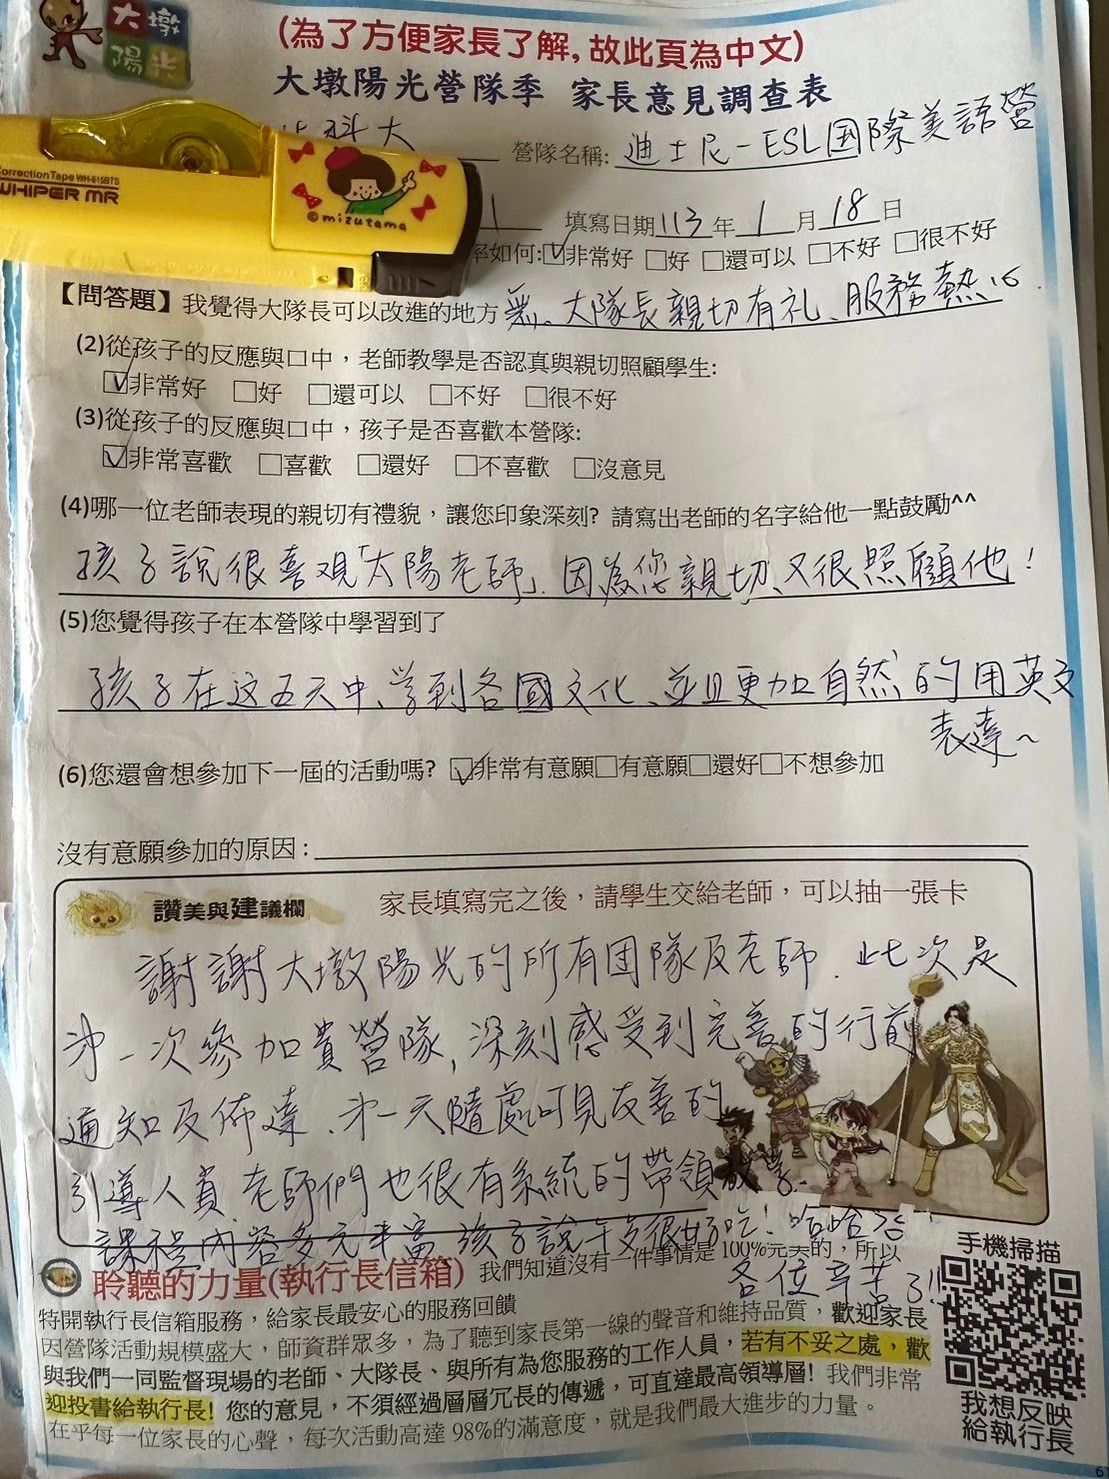 大墩
陽光
(為了方便家長了解,故此頁為中文)
大墩陽光營隊季 家長意見調查表
科大 營隊名稱: 迪士尼-ESL国際美語營
Correction Tape WH-615BTS
WHIPER MR
©mizutama
1 填寫日期113年1月18日
率如何:☑非常好 □好 □還可以 □不好 □很不好
【問答題】我覺得大隊長可以改進的地方 無。大隊長親切有礼、服務熱心.
(2)從孩子的反應與口中,老師教學是否認真與親切照顧學生:
☑非常好 □好 □還可以 □不好 □很不好
(3)從孩子的反應與口中,孩子是否喜歡本營隊:
☑非常喜歡 □喜歡 □還好 □不喜歡 □沒意見
(4)哪一位老師表現的親切有禮貌,讓您印象深刻? 請寫出老師的名字給他一點鼓勵^^
孩子說很喜观「太陽老師」因為您親切、又很照顧他!
(5)您覺得孩子在本營隊中學習到了
孩子在这五天中、学到各國文化、並且更加自然的用英文
表達~
(6)您還會想參加下一屆的活動嗎? ☑非常有意願□有意願□還好□不想參加
沒有意願參加的原因:
讚美與建議欄 家長填寫完之後,請學生交給老師,可以抽一張卡
謝謝大墩陽光的所有团隊及老師.此次是
第一次參加貴營隊,深刻感受到完善的行前
通知及佈達.第一天隨處可見友善的
引導人員 老師們也很有系統的帶領放學.
課程內容多元丰富 孩子說午夂很好吃!哈哈哈!!
各位辛苦了!!
聆聽的力量(執行長信箱) 我們知道沒有一件事情是 100%完美的,所以
特開執行長信箱服務,給家長最安心的服務回饋
因營隊活動規模盛大,師資群眾多,為了聽到家長第一線的聲音和維持品質,歡迎家長
與我們一同監督現場的老師、大隊長、與所有為您服務的工作人員,若有不妥之處,歡
迎投書給執行長! 您的意見,不須經過層層冗長的傳遞,可直達最高領導層! 我們非常
在乎每一位家長的心聲,每次活動高達 98%的滿意度,就是我們最大進步的力量。
手機掃描
我想反映
給執行長